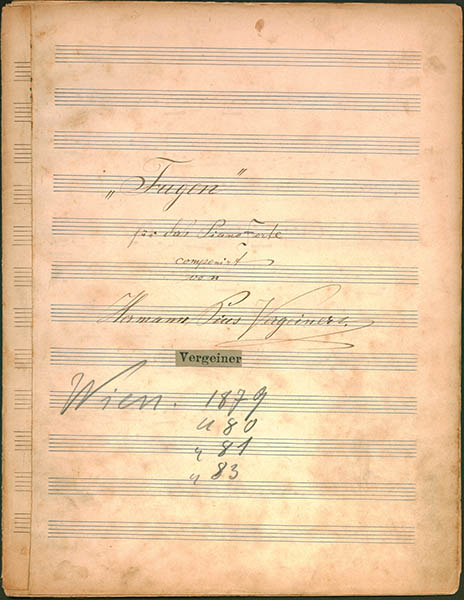 „Fugen"
für das Piano-Forte
componirt
von
Hermann Pius Vergeiner.
Vergeiner
Wien. 1879
u 80
u 81
u 83